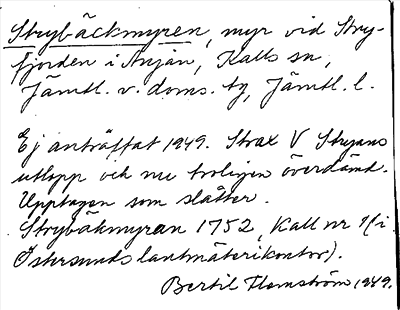 Strybäckmyren, myr vid Stry-
fjorden i Anjan, Kalls sn,
Jämtl. v. doms. tg, Jämtl. l.
Ej anträffat 1949. Strax V Stryans
utlopp och nu troligen överdämd.
Upptagen som slåtter.
Strybäkmyran 1752, Kall nr 1 (i
Östersunds lantmäterikontor).
Bertil Flemström 1949.